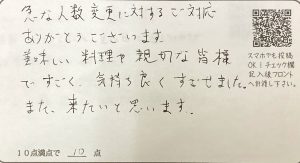 急な人数変更に対するご対応
ありがとうございます
美味しい料理や親切な皆様
ですごく、気持ち良くすごせました。
また、来たいと思います。
スマホでも投稿
OK！チェック欄
記入後フロント
へお渡し下さい。
10点満点で 10 点